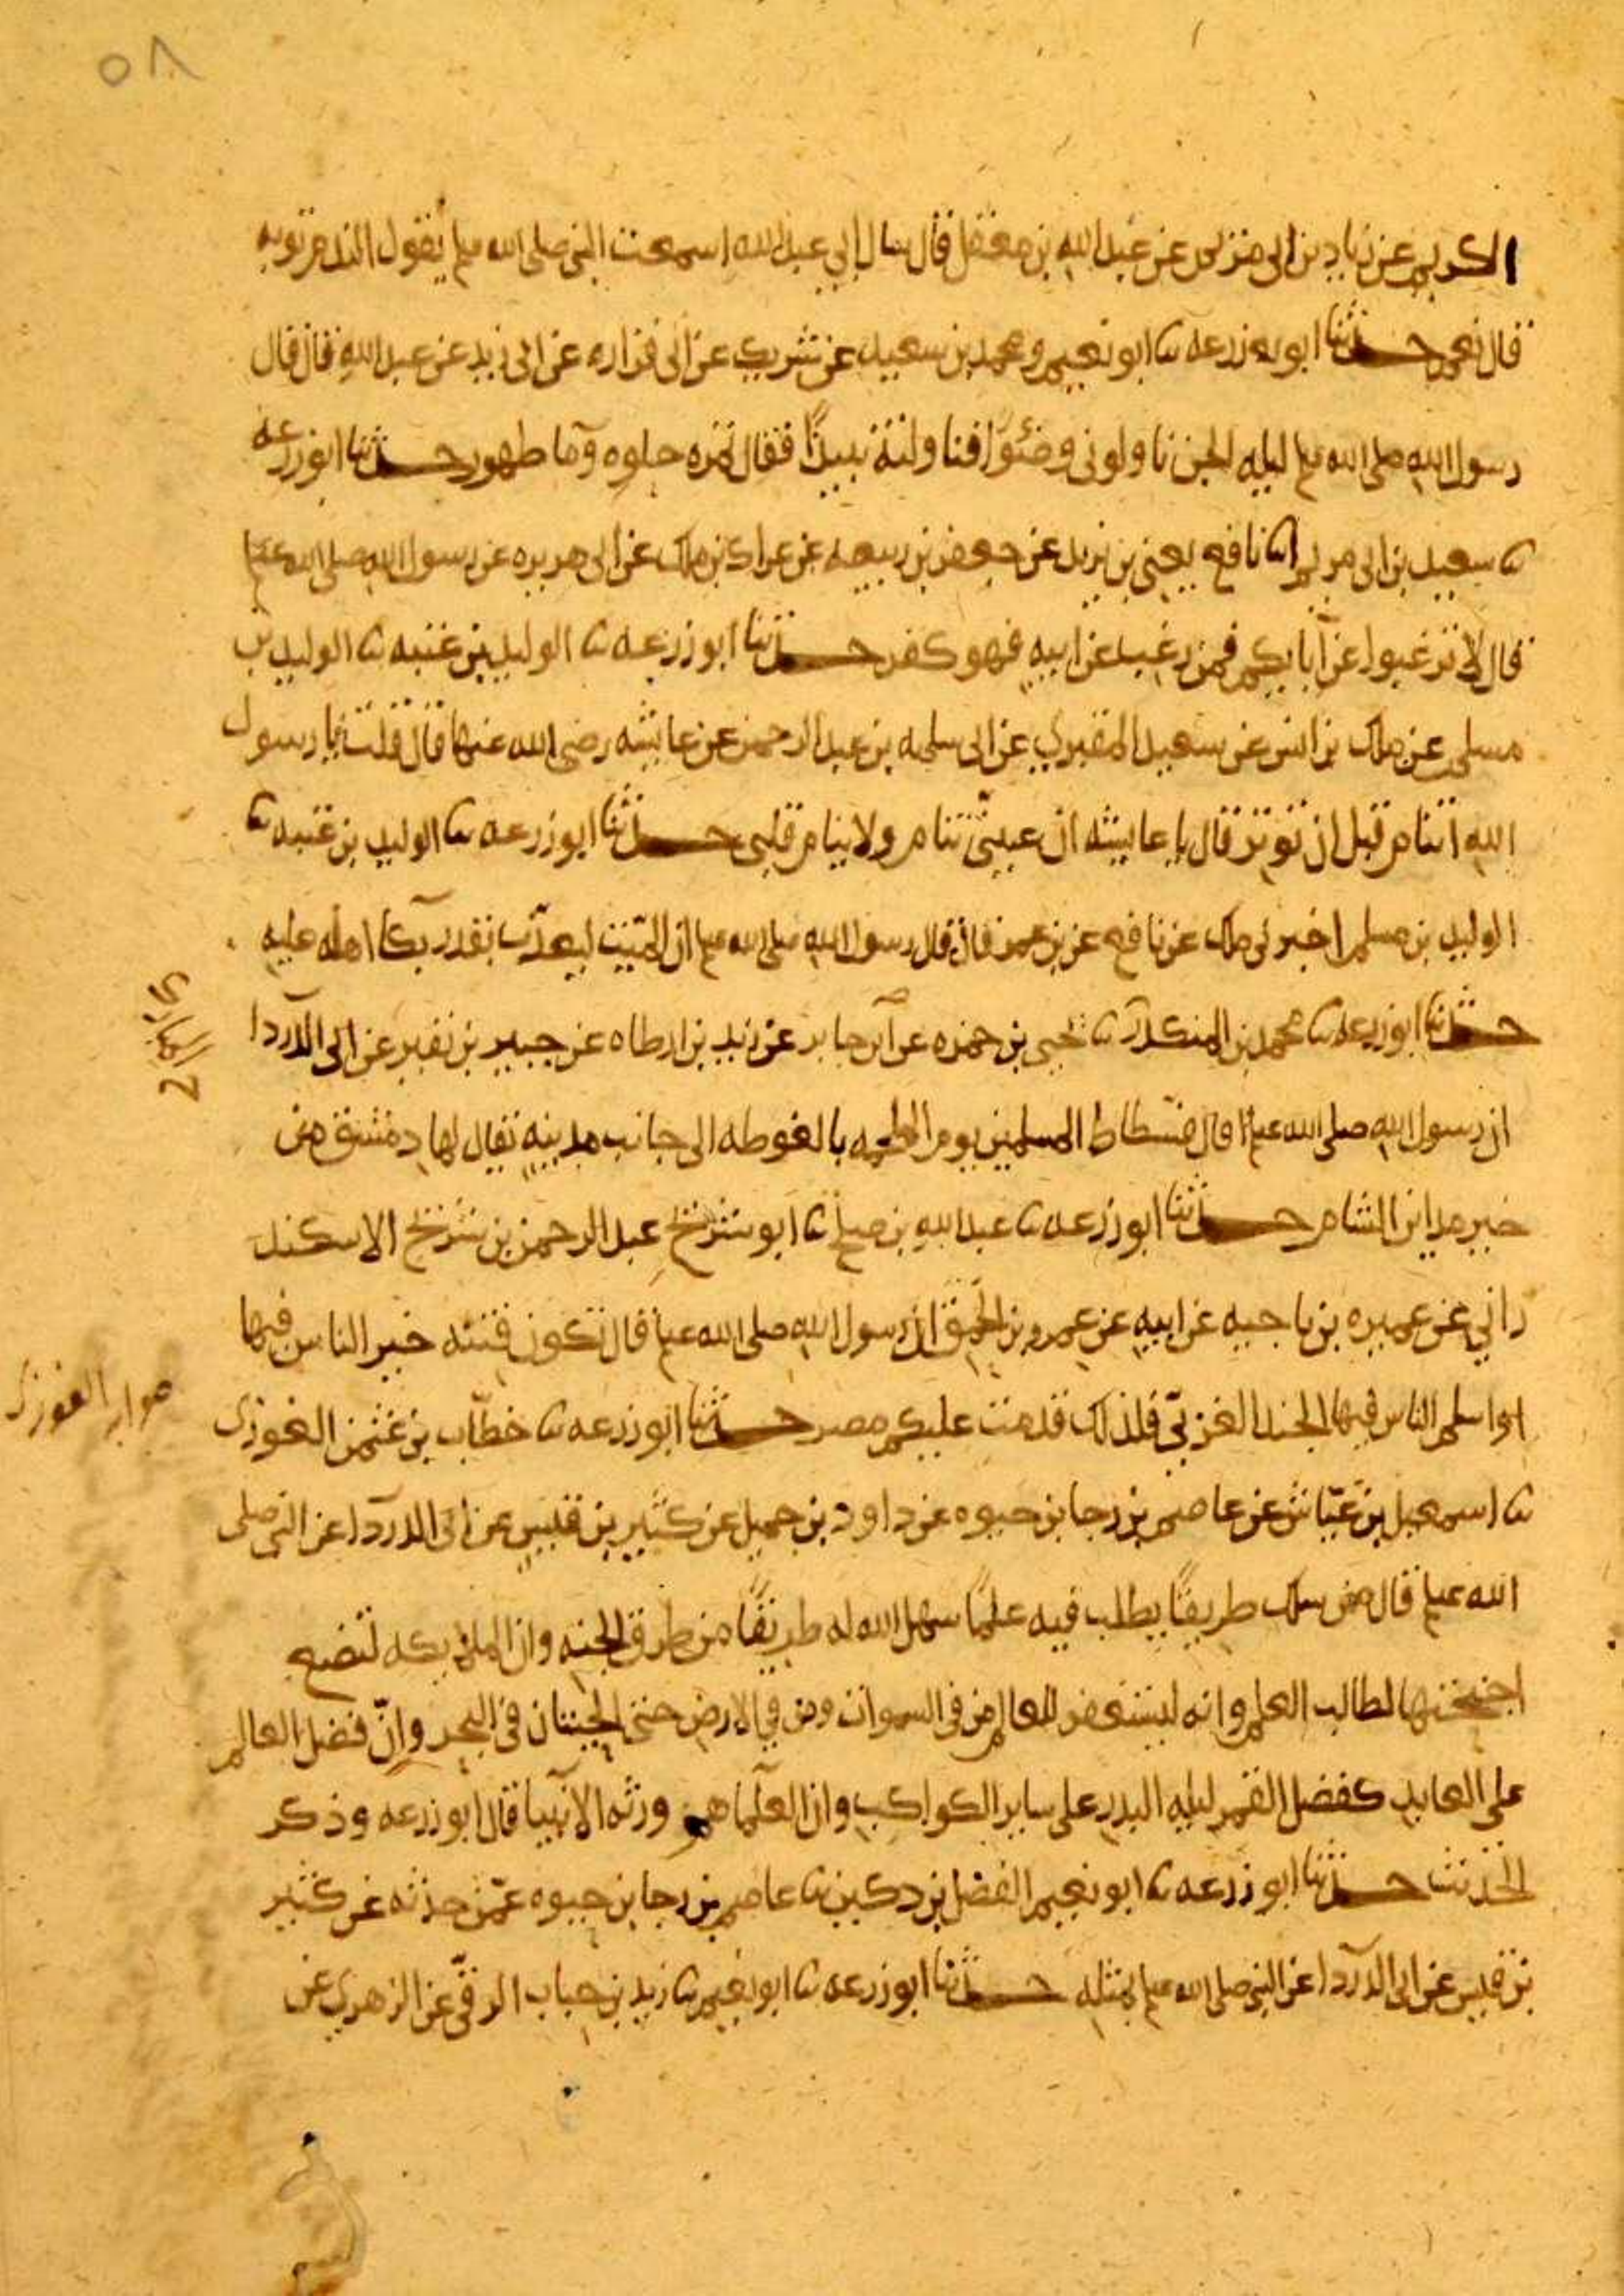 ٥٨
الكريم عن زياد بن ابى مريم عن عبد الله بن معقل قال سال ابي عبد الله اسمعت النبي صلى الله علىه وسلم يقول الندم توبه
قال نعم حدثنا ابو زرعه نا ابو نعيم ومحمد بن سعيد عن شريك عن ابى فزاره عن ابى زيد عن عبد الله قال قال
رسول الله صلى الله علىه وسلم ليله الجن ناولونى وضوًا فناولته نبيذًا فقال تمره حلوه وما طهور حدثنا ابو زرعه
نا سعيد بن ابى مريم انا نافع يعني بن يزيد عن جعفر بن ربيعه عن عراك بن ملك عن ابى هريره عن رسول الله صلى الله علىه وسلم
قال لا ترغبوا عن آبايكم فمن رغب عن ابيه فهو كفر حدثنا ابو زرعه نا الوليد بن عتبه نا الوليد بن
مسلم عن ملك بن انس عن سعيد المقبري عن ابى سلمه بن عبد الرحمن عن عايشه رضى الله عنها قال قلت يا رسول
الله اتنام قبل ان توتر قال يا عايشه ان عينيّ تنام ولا ينام قلبى حدثنا ابو زرعه نا الوليد بن عتبه نا
الوليد بن مسلم اخبرنى ملك عن نافع عن بن عمر قال قال رسول الله صلى الله علىه وسلم ان الميّت ليعذّب بقدر بكا اهله عليه
حدثنا ابو زرعه نا محمد بن المنكدر نا يحيى بن حمزه عن ابن جابر عن زيد بن ارطاه عن جبير بن نفير عن ابى الدردا
ان رسول الله صلى الله علىه وسلم قال فسطاط المسلمين يوم الملحمه بالغوطه الى جانب مدينه يقال لها دمشق من
خير مداين الشام حدثنا ابو زرعه نا عبد الله بن صلح نا ابو شريح عبد الرحمن بن شريح الاسكند
راني عن عميره بن ناجيه عن ابيه عن عمرو بن الحمق ان رسول الله صلى الله علىه وسلم قال تكون فتنه خير الناس فيها
او اسلم الناس فيها الجند الغربيّ فلذلك قدمت عليكم مصر حدثنا ابو زرعه نا خطّاب بن عثمن الغوزى
صوابه الفوزى
نا اسمعيل بن عيّاش عن عاصم بن رجا بن حيوه عن داود بن جميل عن كثير بن قيس عن ابى الدردا عن النبى صلى
الله علىه وسلم قال من سلك طريقًا يطلب فيه علمًا سهل الله له طريقًا من طرق الجنه وان الملايكه لتضع
اجنحتها لطالب العلم وانه ليستغفر للعالم من فى السموات ومن في الارض حتى الحيتان فى البحر وانّ فضل العالم
على العابد كفضل القمر ليله البدر على ساير الكواكب وان العلما هم ورثه الانبيا قال ابو زرعه وذكر
الحديث حدثنا ابو زرعه نا ابو نعيم الفضل بن دكين نا عاصم بن رجا بن حيوه عمّن حدثه عن كثير
بن قيس عن ابى الدردا عن النبى صلى الله علىه وسلم بمثله حدثنا ابو زرعه نا ابو نعيم نا زيد بن حباب الرقّى عن الزهري عن